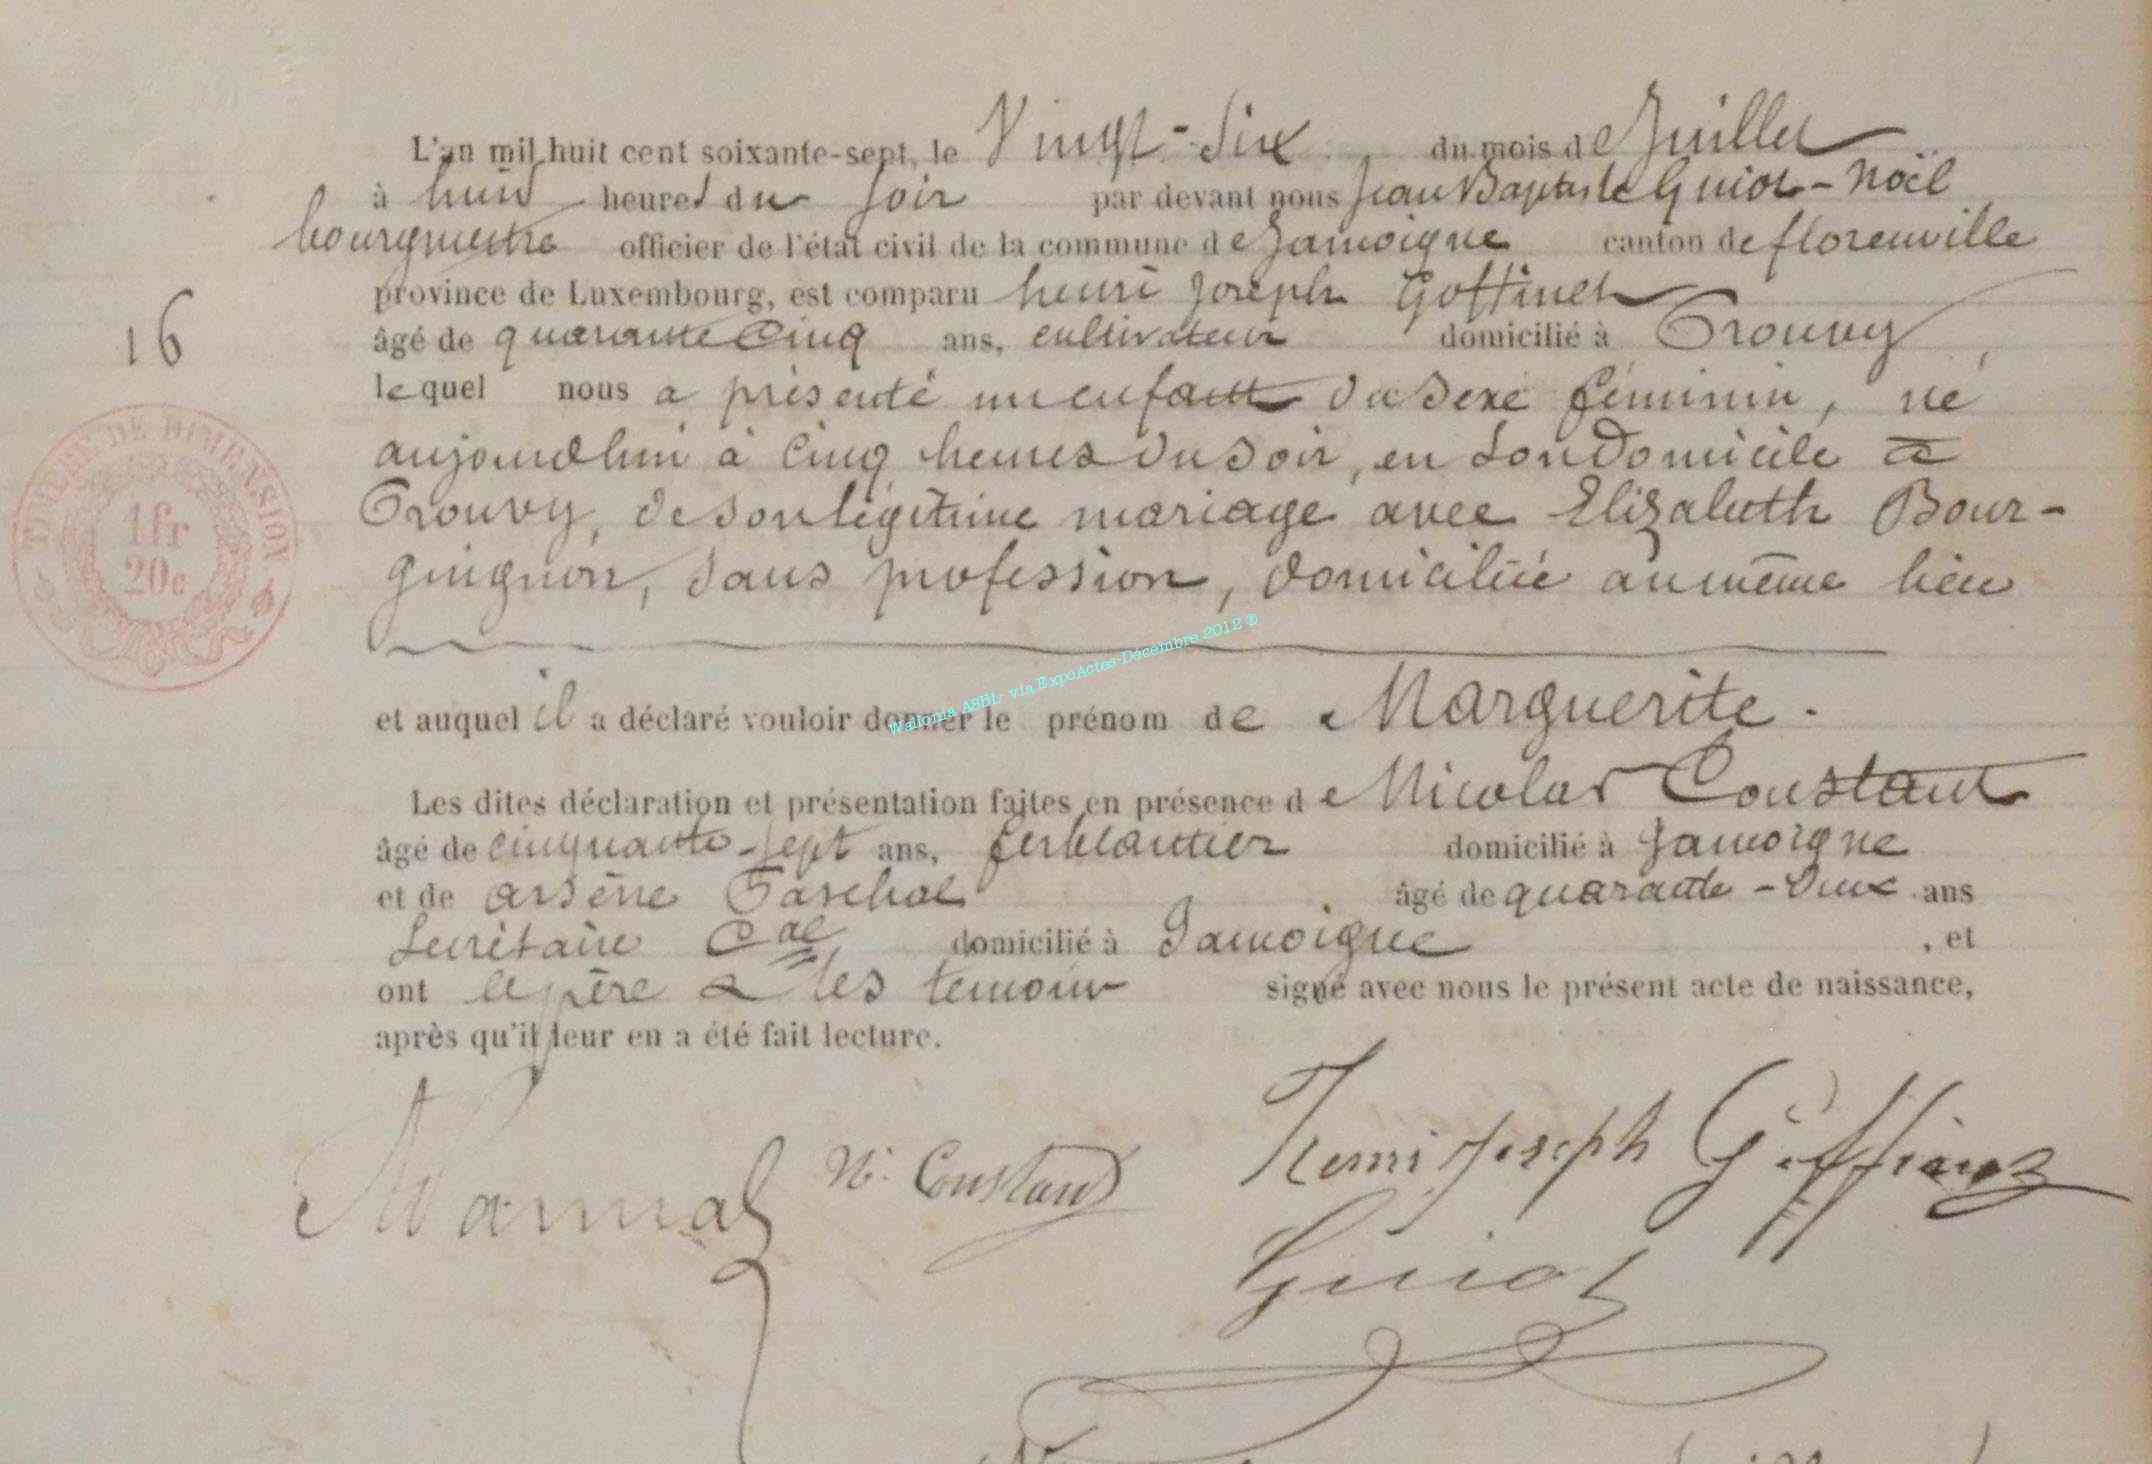 L'an mil huit cent soixante-sept, le Vingt-Six du mois de Juillet
à huit heures du soir par devant nous Jean Baptiste Guiot-Noël
bourgmestre officier de l'état civil de la commune de Jamoigne canton de florenville
province de Luxembourg, est comparu henri joseph Goffinet
âgé de quarante Cinq ans, cultivateur domicilié à Prouvy,
lequel nous a présenté un enfant du sexe féminin, né
16
aujourdhui à Cinq heures du soir, en son Domicile à
Prouvy, de son légitime mariage avec Elizabeth Bour-
guignon, sans profession, domiciliée au même lieu
TIMBRE DE DIMENSION
1fr
20c
Wallonia ASBL- via ExpoActes-Décembre 2012 ®
et auquel il a déclaré vouloir donner le prénom de Marguerite.
Les dites déclaration et présentation faites en présence de Nicolas Constant
âgé de cinquante-sept ans, ferblantier domicilié à Jamoigne
et de arsène âgé de quarante-deux ans
Secrétaire Cal domicilié à Jamoigne, et
ont le père & les témoins signé avec nous le présent acte de naissance,
après qu'il leur en a été fait lecture.
N. Constant Henri Joseph Goffinet
Guiot